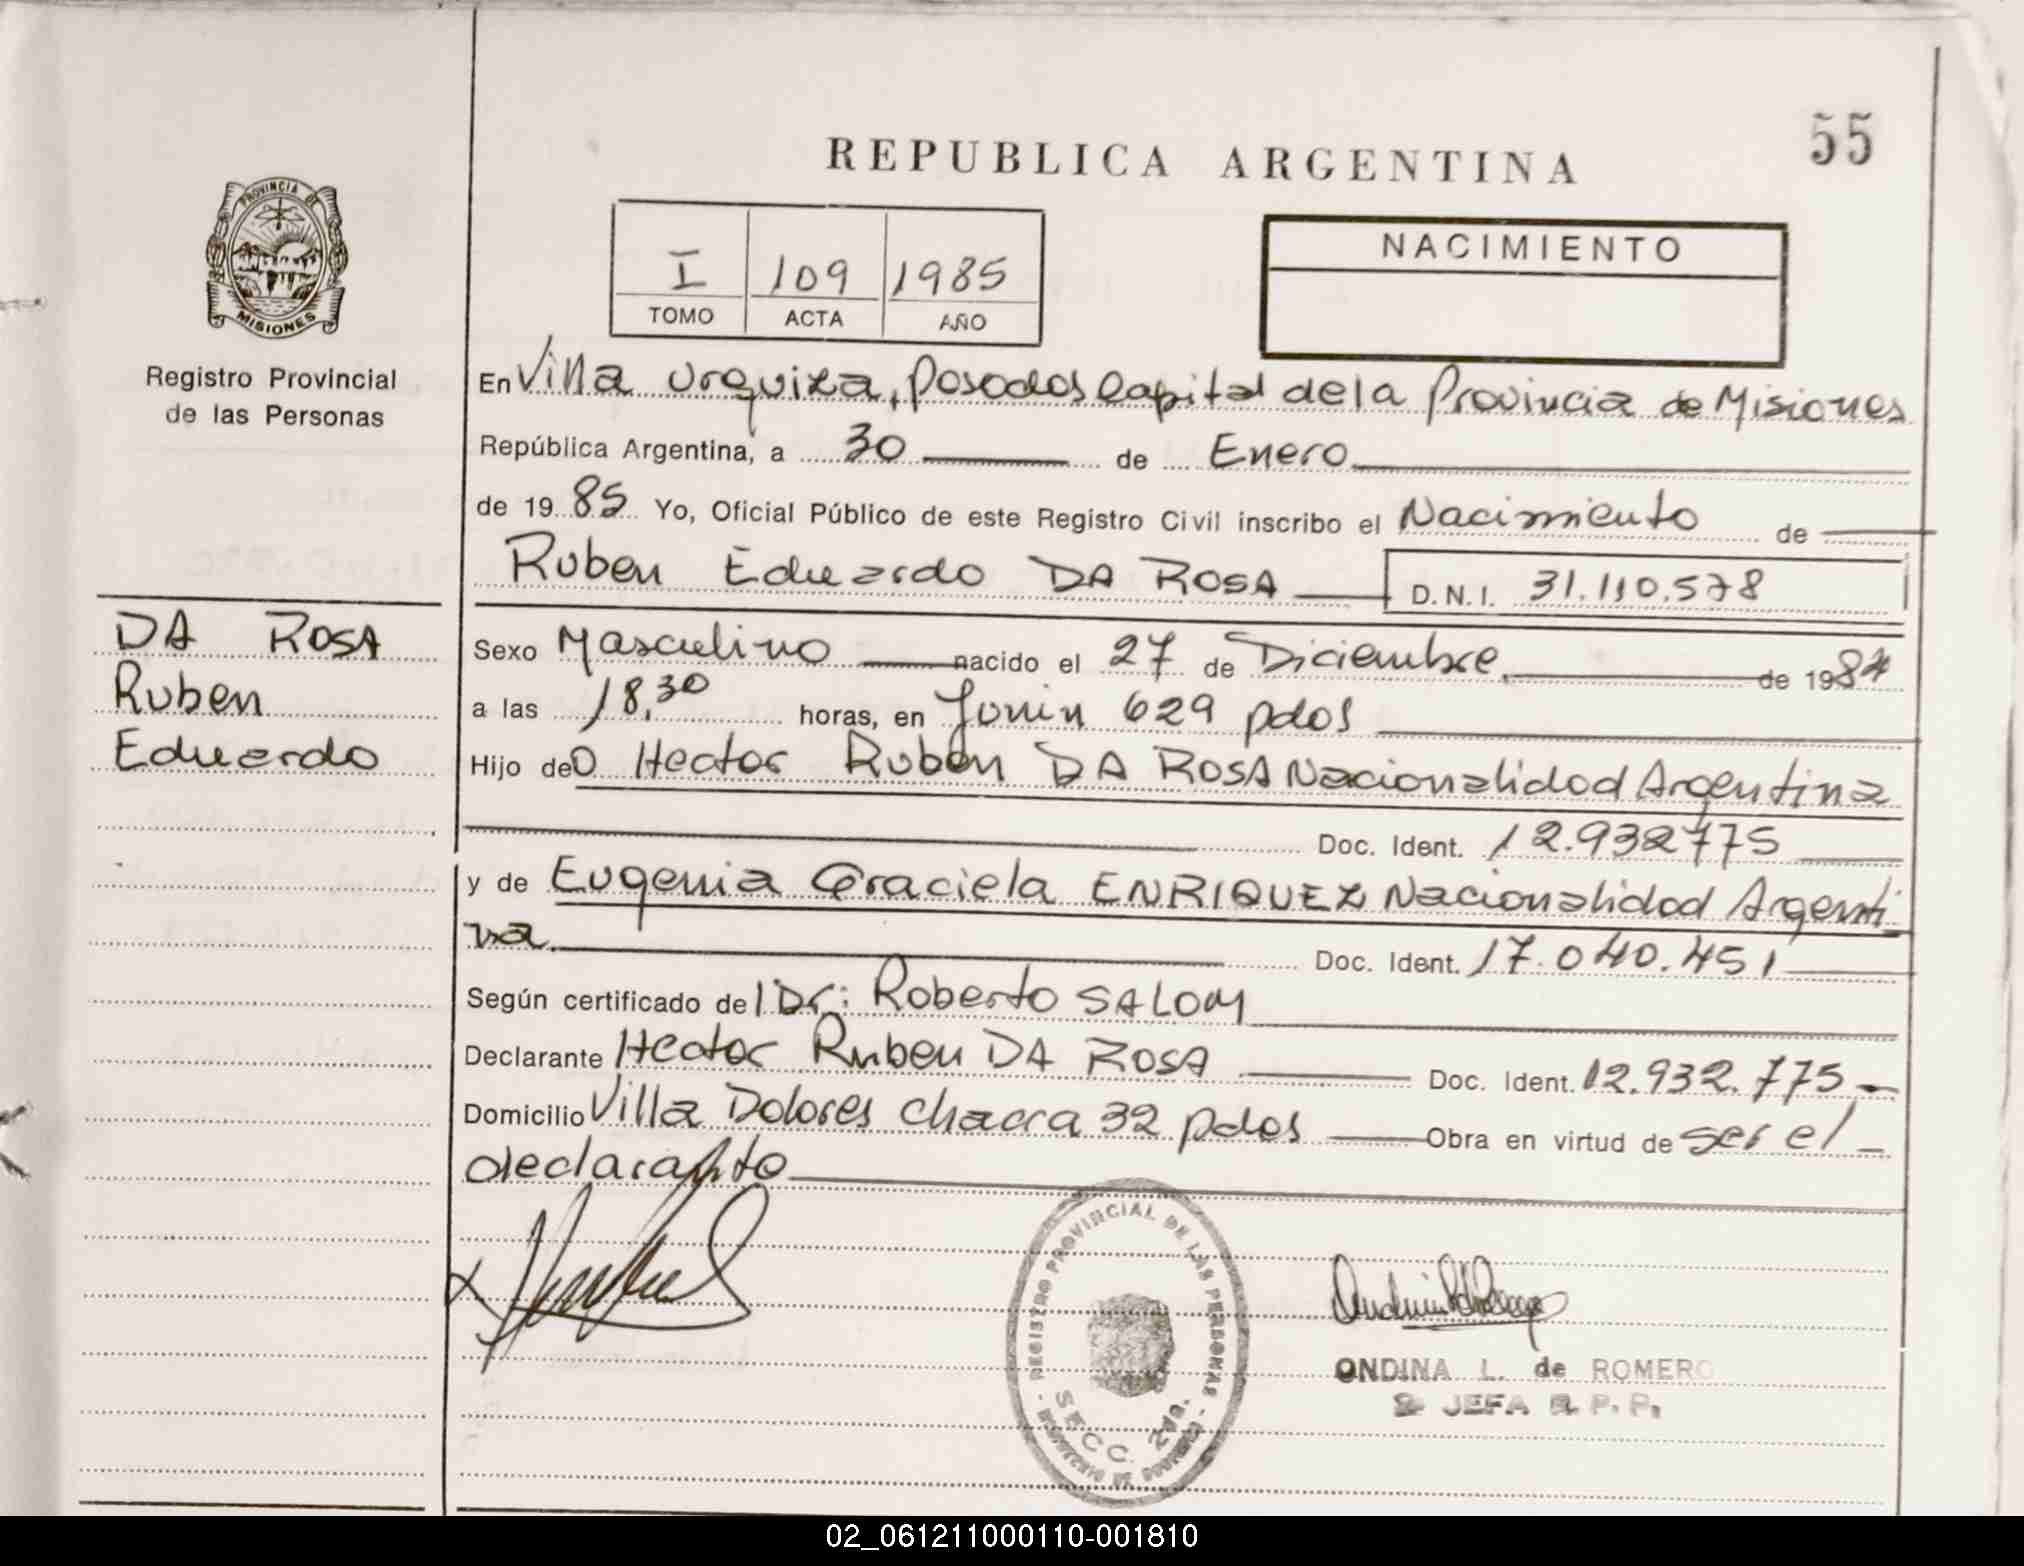 55
REPUBLICA ARGENTINA
PROVINCIA DE
MISIONES
Registro Provincial
de las Personas
I 109 1985
TOMO ACTA AÑO
NACIMIENTO
En Villa Urquiza, Posadas Capital de la Provincia de Misiones
República Argentina, a 30 de Enero
de 19 85 Yo, Oficial Público de este Registro Civil inscribo el Nacimiento de
Ruben Eduardo DA ROSA D.N.I. 31.110.578
DA ROSA
Ruben
Eduardo
Sexo Masculino nacido el 27 de Diciembre de 1984
a las 18,30 horas, en Junin 629 pdas
Hijo de D Hector Ruben DA ROSA Nacionalidad Argentina
Doc. Ident. 12.932775
y de Eugenia Graciela ENRIQUEZ Nacionalidad Argenti
na Doc. Ident. 17.040.451
Según certificado del Dr: Roberto SALOM
Declarante Hector Ruben DA ROSA Doc. Ident. 12.932.775
Domicilio Villa Dolores chacra 32 pdas Obra en virtud de ser el
declarante
REGISTRO PROVINCIAL DE LAS PERSONAS
SECC.
ONDINA L. de ROMERO
JEFA R. P. P.
02_061211000110-001810